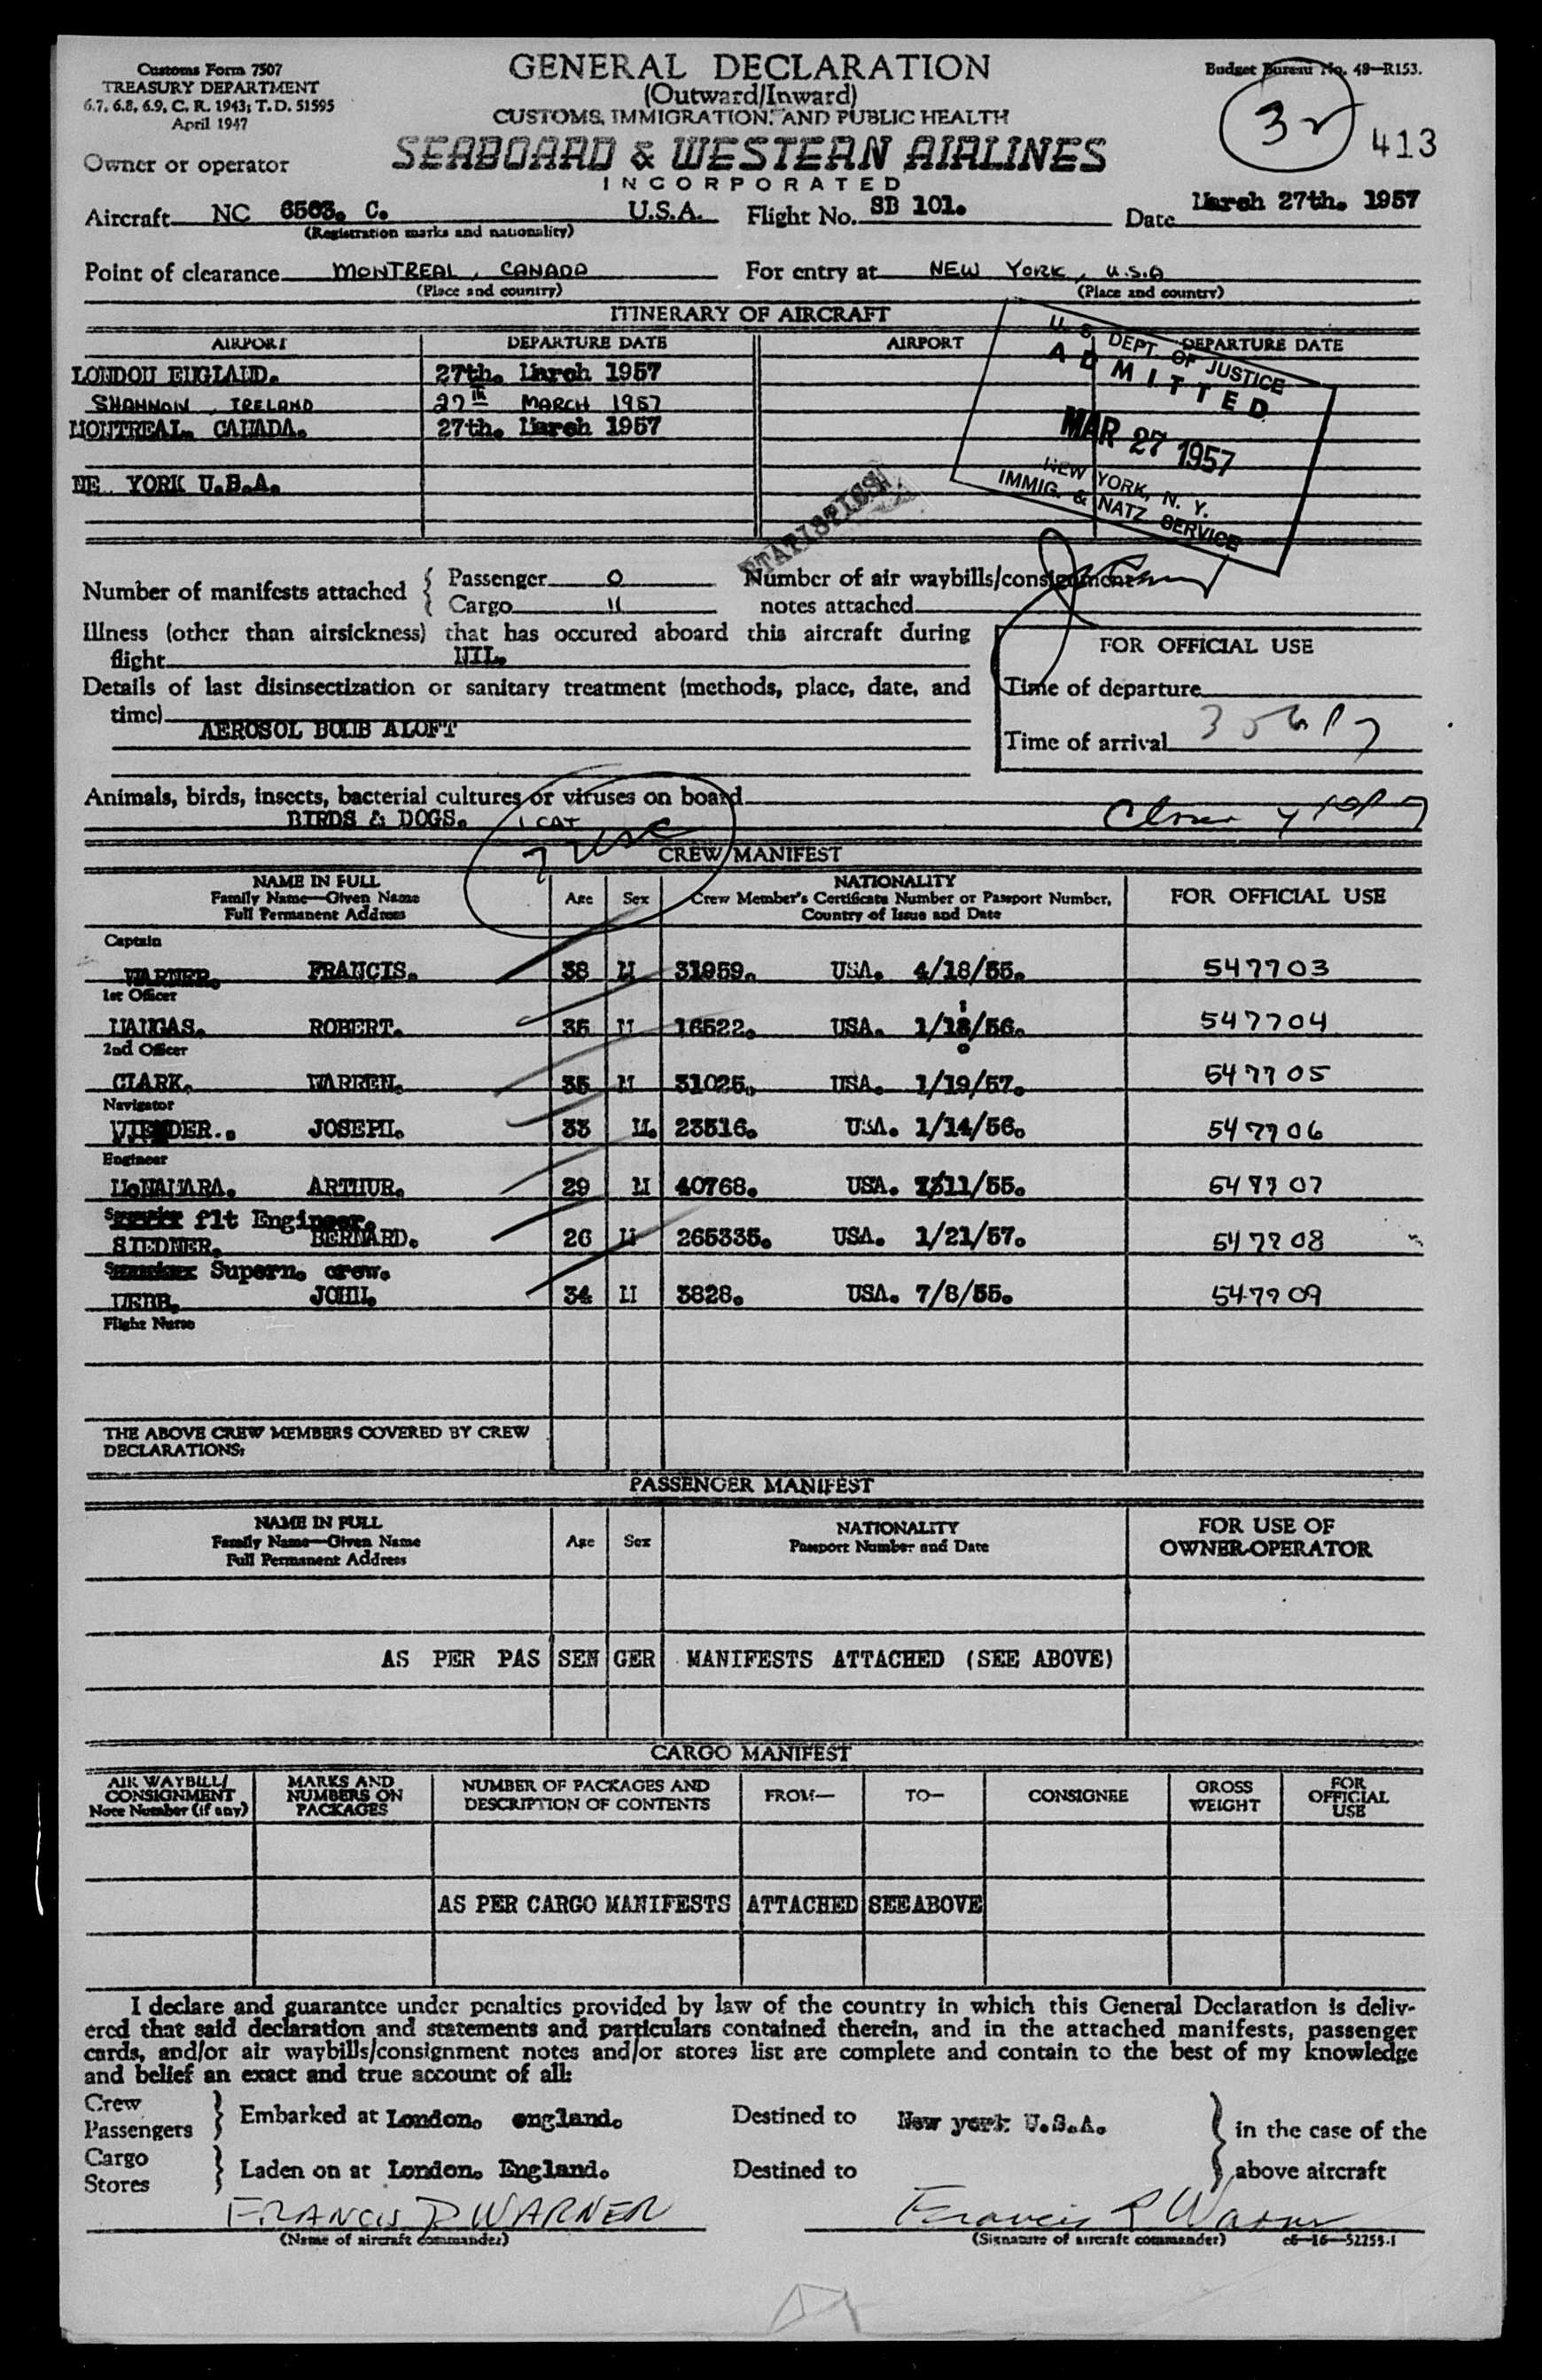 Customs Form 7507
TREASURY DEPARTMENT
6.7, 6.8, 6.9, C. R. 1943; T. D. 51595
April 1947
GENERAL DECLARATION
(Outward/Inward)
CUSTOMS, IMMIGRATION, AND PUBLIC HEALTH
Budget Bureau No. 48—R153.
32 413
Owner or operator SEABOARD & WESTERN AIRLINES
INCORPORATED
Aircraft NC 6503. C. U.S.A. Flight No. SB 101. Date March 27th. 1957
(Registration marks and nationality)
Point of clearance MONTREAL, CANADA For entry at NEW YORK, U.S.A
(Place and country) (Place and country)
ITINERARY OF AIRCRAFT
AIRPORT DEPARTURE DATE AIRPORT DEPARTURE DATE
LONDON ENGLAND. 27th. March 1957
SHANNON, IRELAND 27th MARCH 1957
MONTREAL. CANADA. 27th. March 1957
NE YORK U.S.A.
U. S. DEPT. OF JUSTICE
ADMITTED
MAR 27 1957
NEW YORK, N. Y.
IMMIG. & NATZ. SERVICE
STATISTICS
Number of manifests attached Passenger 0 Number of air waybills/consignment
Cargo 11 notes attached
Illness (other than airsickness) that has occured aboard this aircraft during
flight NIL.
FOR OFFICIAL USE
Details of last disinsectization or sanitary treatment (methods, place, date, and
time)
AEROSOL BOMB ALOFT
Time of departure
Time of arrival
Animals, birds, insects, bacterial cultures or viruses on board
BIRDS & DOGS. 1 CAT
7 USC
CREW MANIFEST
NAME IN FULL
Family Name—Given Name
Full Permanent Address
Age Sex
NATIONALITY
Crew Member's Certificate Number or Passport Number,
Country of Issue and Date
FOR OFFICIAL USE
Captain
WARNER. FRANCIS. 38 M 31959. USA. 4/18/55. 547703
1st Officer
MANGAS. ROBERT. 35 M 16522. USA. 1/18/56. 547704
2nd Officer
CLARK. WARREN. 35 M 31025. USA. 1/19/57. 547705
Navigator
JOSEPH. 33 M. 23516. USA. 1/14/56. 547706
Engineer
McNAMARA. ARTHUR. 29 M 40768. USA. 11/55. 547707
flt Engineer.
SIEDNER. BERNARD. 26 M 265335. USA. 1/21/57. 547708
Supern. crew.
WEBB. JOHN. 34 M 3828. USA. 7/8/55. 547709
Flight Nurse
THE ABOVE CREW MEMBERS COVERED BY CREW
DECLARATIONS:
PASSENGER MANIFEST
NAME IN FULL
Family Name—Given Name
Full Permanent Address
Age Sex
NATIONALITY
Passport Number and Date
FOR USE OF
OWNER-OPERATOR
AS PER PAS SEN GER MANIFESTS ATTACHED (SEE ABOVE)
CARGO MANIFEST
AIR WAYBILL/
CONSIGNMENT
Note Number (if any)
MARKS AND
NUMBERS ON
PACKAGES
NUMBER OF PACKAGES AND
DESCRIPTION OF CONTENTS
FROM— TO— CONSIGNEE
GROSS
WEIGHT
FOR
OFFICIAL
USE
AS PER CARGO MANIFESTS ATTACHED SEE ABOVE
I declare and guarantee under penalties provided by law of the country in which this General Declaration is deliv-
ered that said declaration and statements and particulars contained therein, and in the attached manifests, passenger
cards, and/or air waybills/consignment notes and/or stores list are complete and contain to the best of my knowledge
and belief an exact and true account of all:
Crew
Passengers Embarked at London. england. Destined to New york U.S.A. in the case of the
Cargo
Stores Laden on at London. England. Destined to above aircraft
FRANCIS R WARNER Francis R Warner
(Name of aircraft commander) (Signature of aircraft commander) c6—16—52255-1